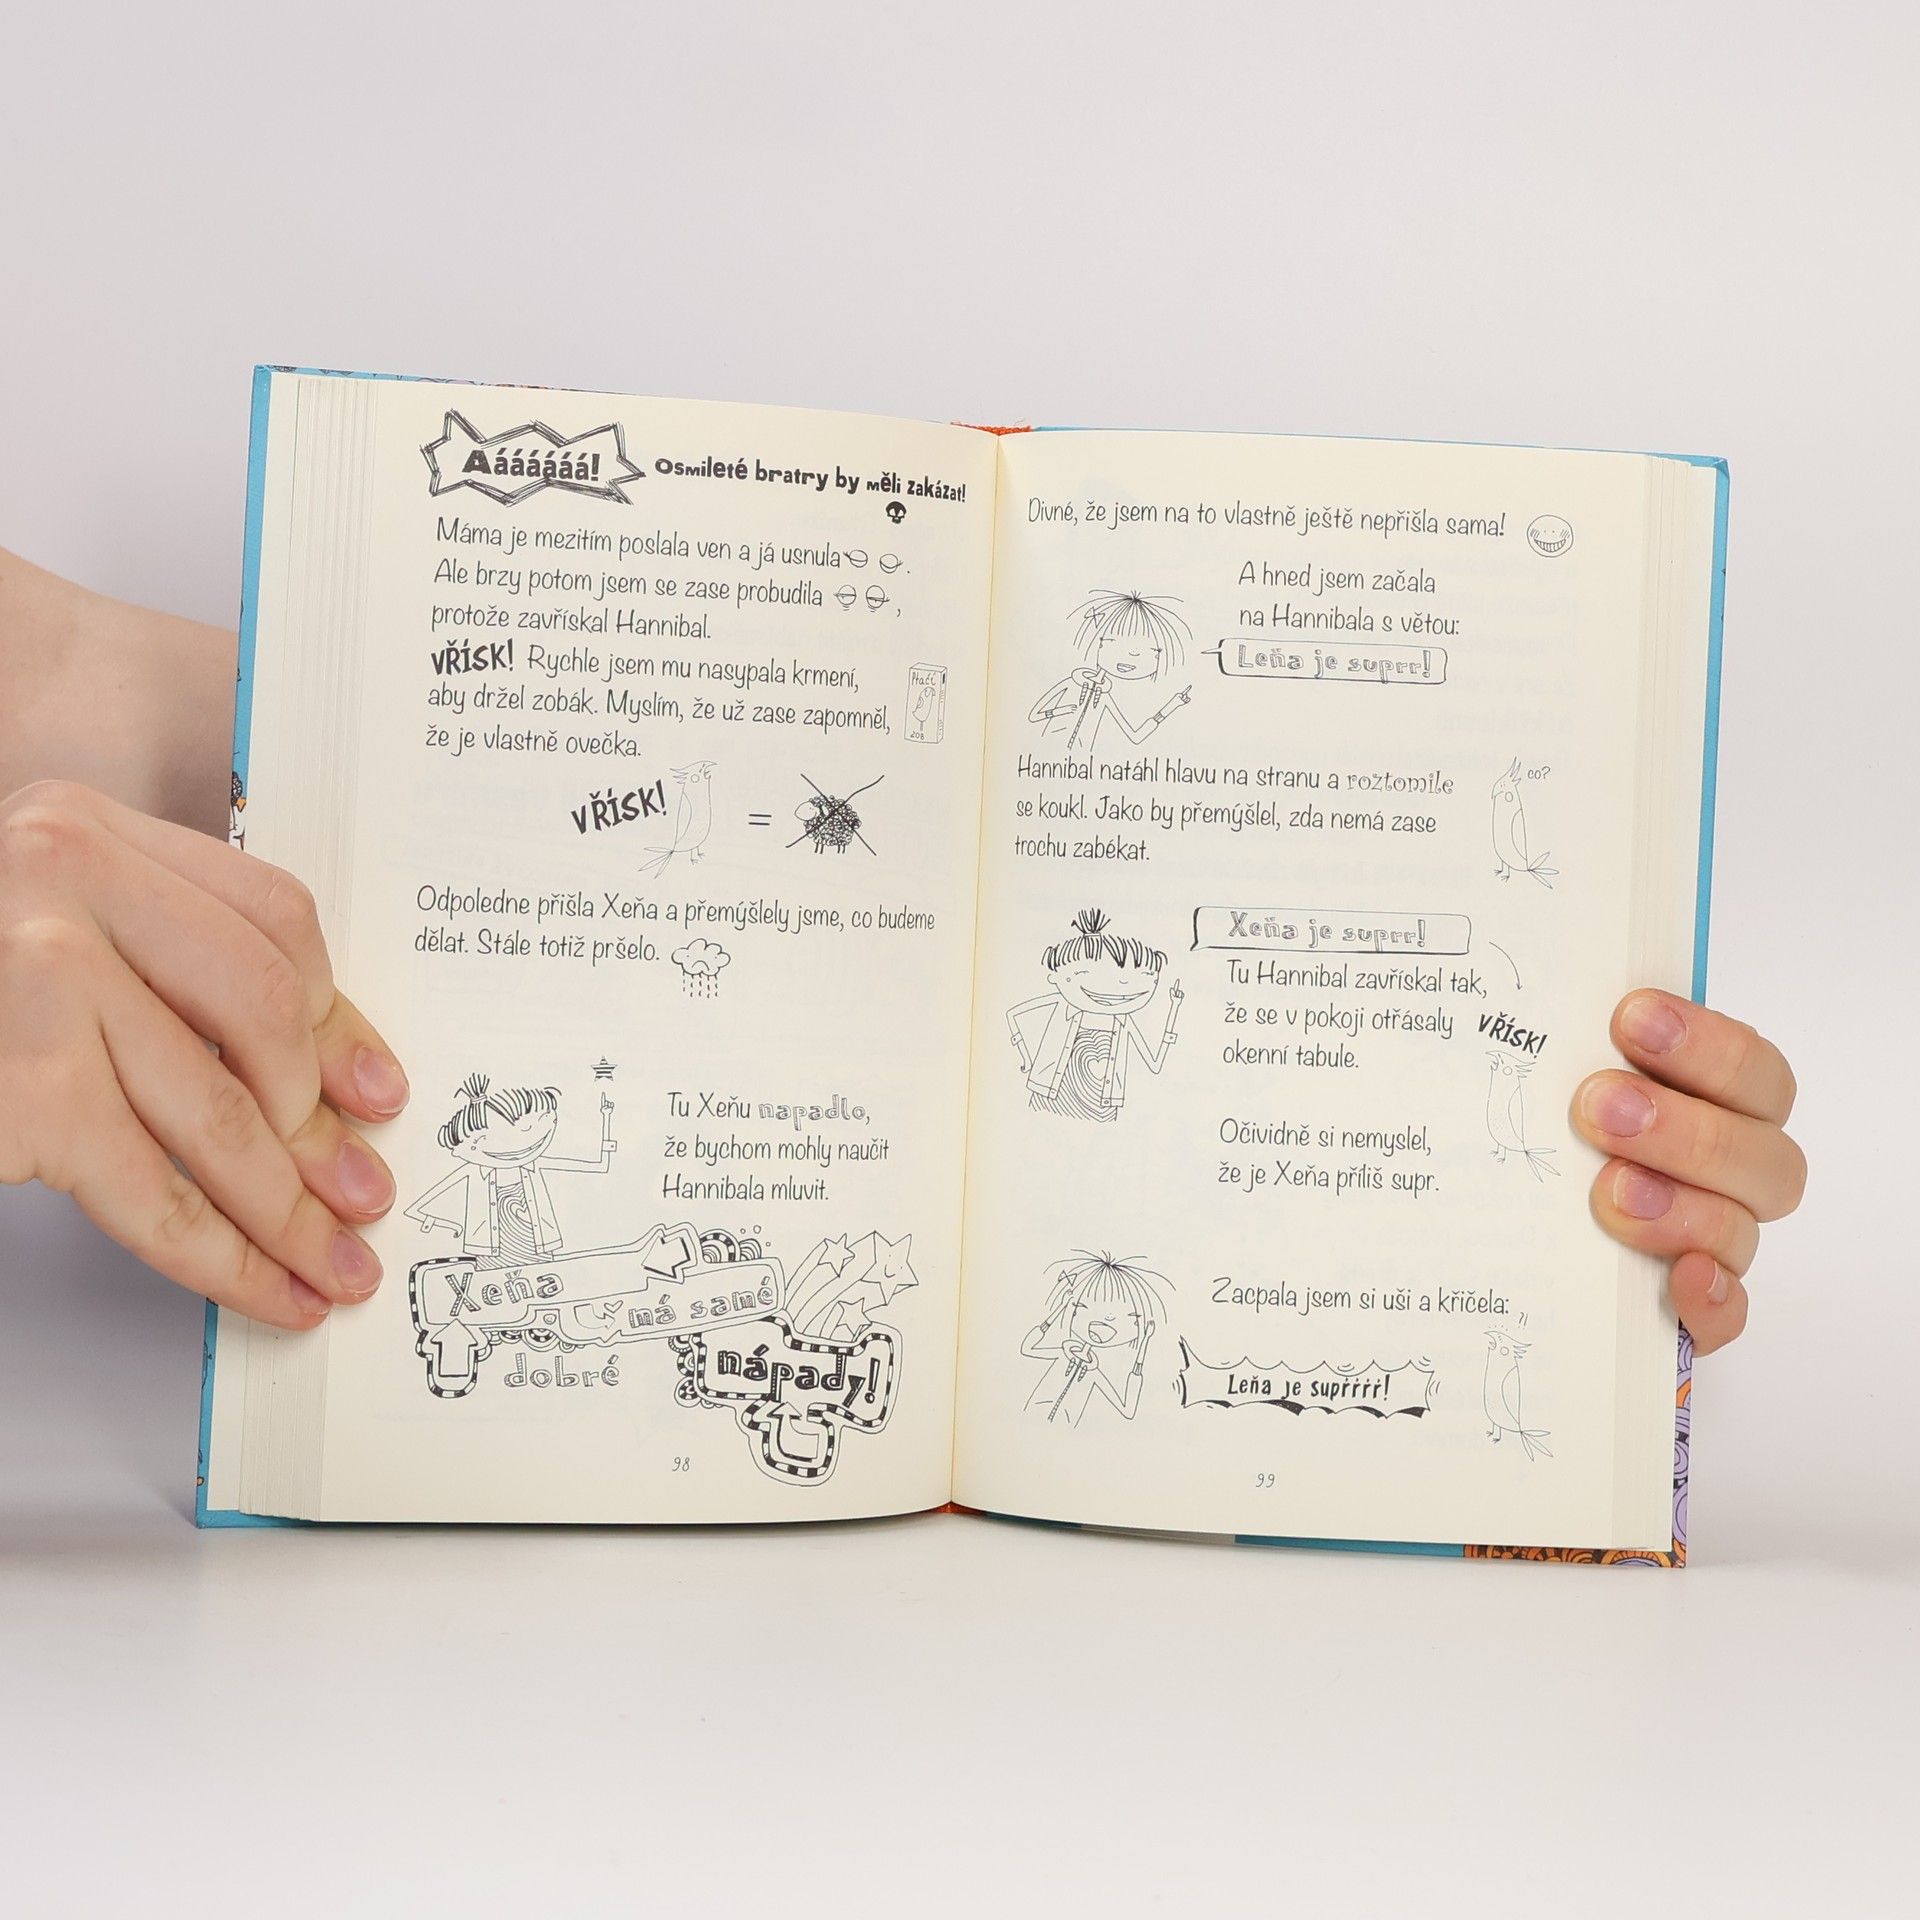 Aáááááá! Osmileté bratry by měli zakázat!
Máma je mezitím poslala ven a já usnula.
Ale brzy potom jsem se zase probudila,
protože zavřískal Hannibal.
VŘÍSK! Rychle jsem mu nasypala krmení,
aby držel zobák. Myslím, že už zase zapomněl,
že je vlastně ovečka.
Ptačí
ZOB
VŘÍSK! =
Odpoledne přišla Xeňa a přemýšlely jsme, co budeme
dělat. Stále totiž pršelo.
Tu Xeňu napadlo,
že bychom mohly naučit
Hannibala mluvit.
Xeňa
má samé
dobré
nápady!
98
Divné, že jsem na to vlastně ještě nepřišla sama!
A hned jsem začala
na Hannibala s větou:
Leňa je suprr!
Hannibal natáhl hlavu na stranu a roztomile
se koukl. Jako by přemýšlel, zda nemá zase
trochu zabékat.
co?
Xeňa je suprr!
Tu Hannibal zavřískal tak,
že se v pokoji otřásaly
okenní tabule.
VŘÍSK!
Očividně si nemyslel,
že je Xeňa příliš supr.
Zacpala jsem si uši a křičela:
?!
Leňa je supřřřř!
99